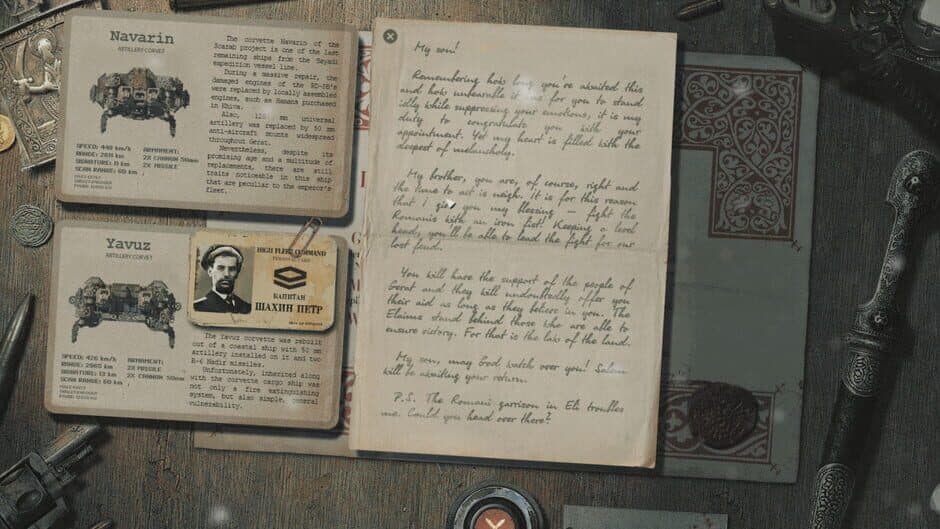 Navarin
ARTILLERY CORVET
The corvette Navarin of the
Sozab project is one of the last
remaining ships from the Sayadi
expedition vessel line.
During a massive repair, the
damaged engines of the RD-
were replaced by locally assembled
engines, such as Hamans purchased
in Khiva.
Also, mm universal
artillery was replaced by 50 mm
anti-aircraft mounts widespread
throughout Gerat.
Nevertheless, despite its
promising age and a multitude of
replacements, there are still
traits noticeable in this ship
that are peculiar to the emperor's
fleet.
SPEED: 440 km/h
RANGE: km
SIGNATURE: 11 km
SCAN RANGE: 60 km
ARMAMENT:
2X CANNON 50mm
2X MISSILE
Yavuz
ARTILLERY CORVET
SPEED: 426 km/h
RANGE: km
SIGNATURE: 13 km
SCAN RANGE: 60 km
ARMAMENT:
2X MISSILE
2X CANNON 50mm
HIGH FLEET COMMAND
КАПИТАН
ШАХИН ПЕТР
The Yavuz corvette was rebuilt
out of a coastal ship with 50 mm
artillery installed on it and two
R-6 Nadir missiles.
Unfortunately, inherited along
with the corvette cargo ship was
not only a fire extinguishing
system, but also simple, general
vulnerability.
My son!
Remembering how long you've awaited this
and how unbearable it was for you to stand
idly while suppressing your emotions, it is my
duty to congratulate you with your
appointment. Yet my heart is filled with the
deepest of melancholy.
My brother, you are, of course, right and
the time to act is neigh. It is for this reason
that I give you my blessing – fight the
Romanis with an iron fist! Keeping a level
head, you'll be able to lead the fight for our
lost feud.
You will have the support of the people of
Gerat and they will undoubtedly offer you
their aid as long as they believe in you. The
Elaims stand behind those who are able to
ensure victory. For that is the law of the land.
My son, may God watch over you! Salem
will be awaiting your return.
P.S. The Romani garrison in Eli troubles
me. Could you head over there?